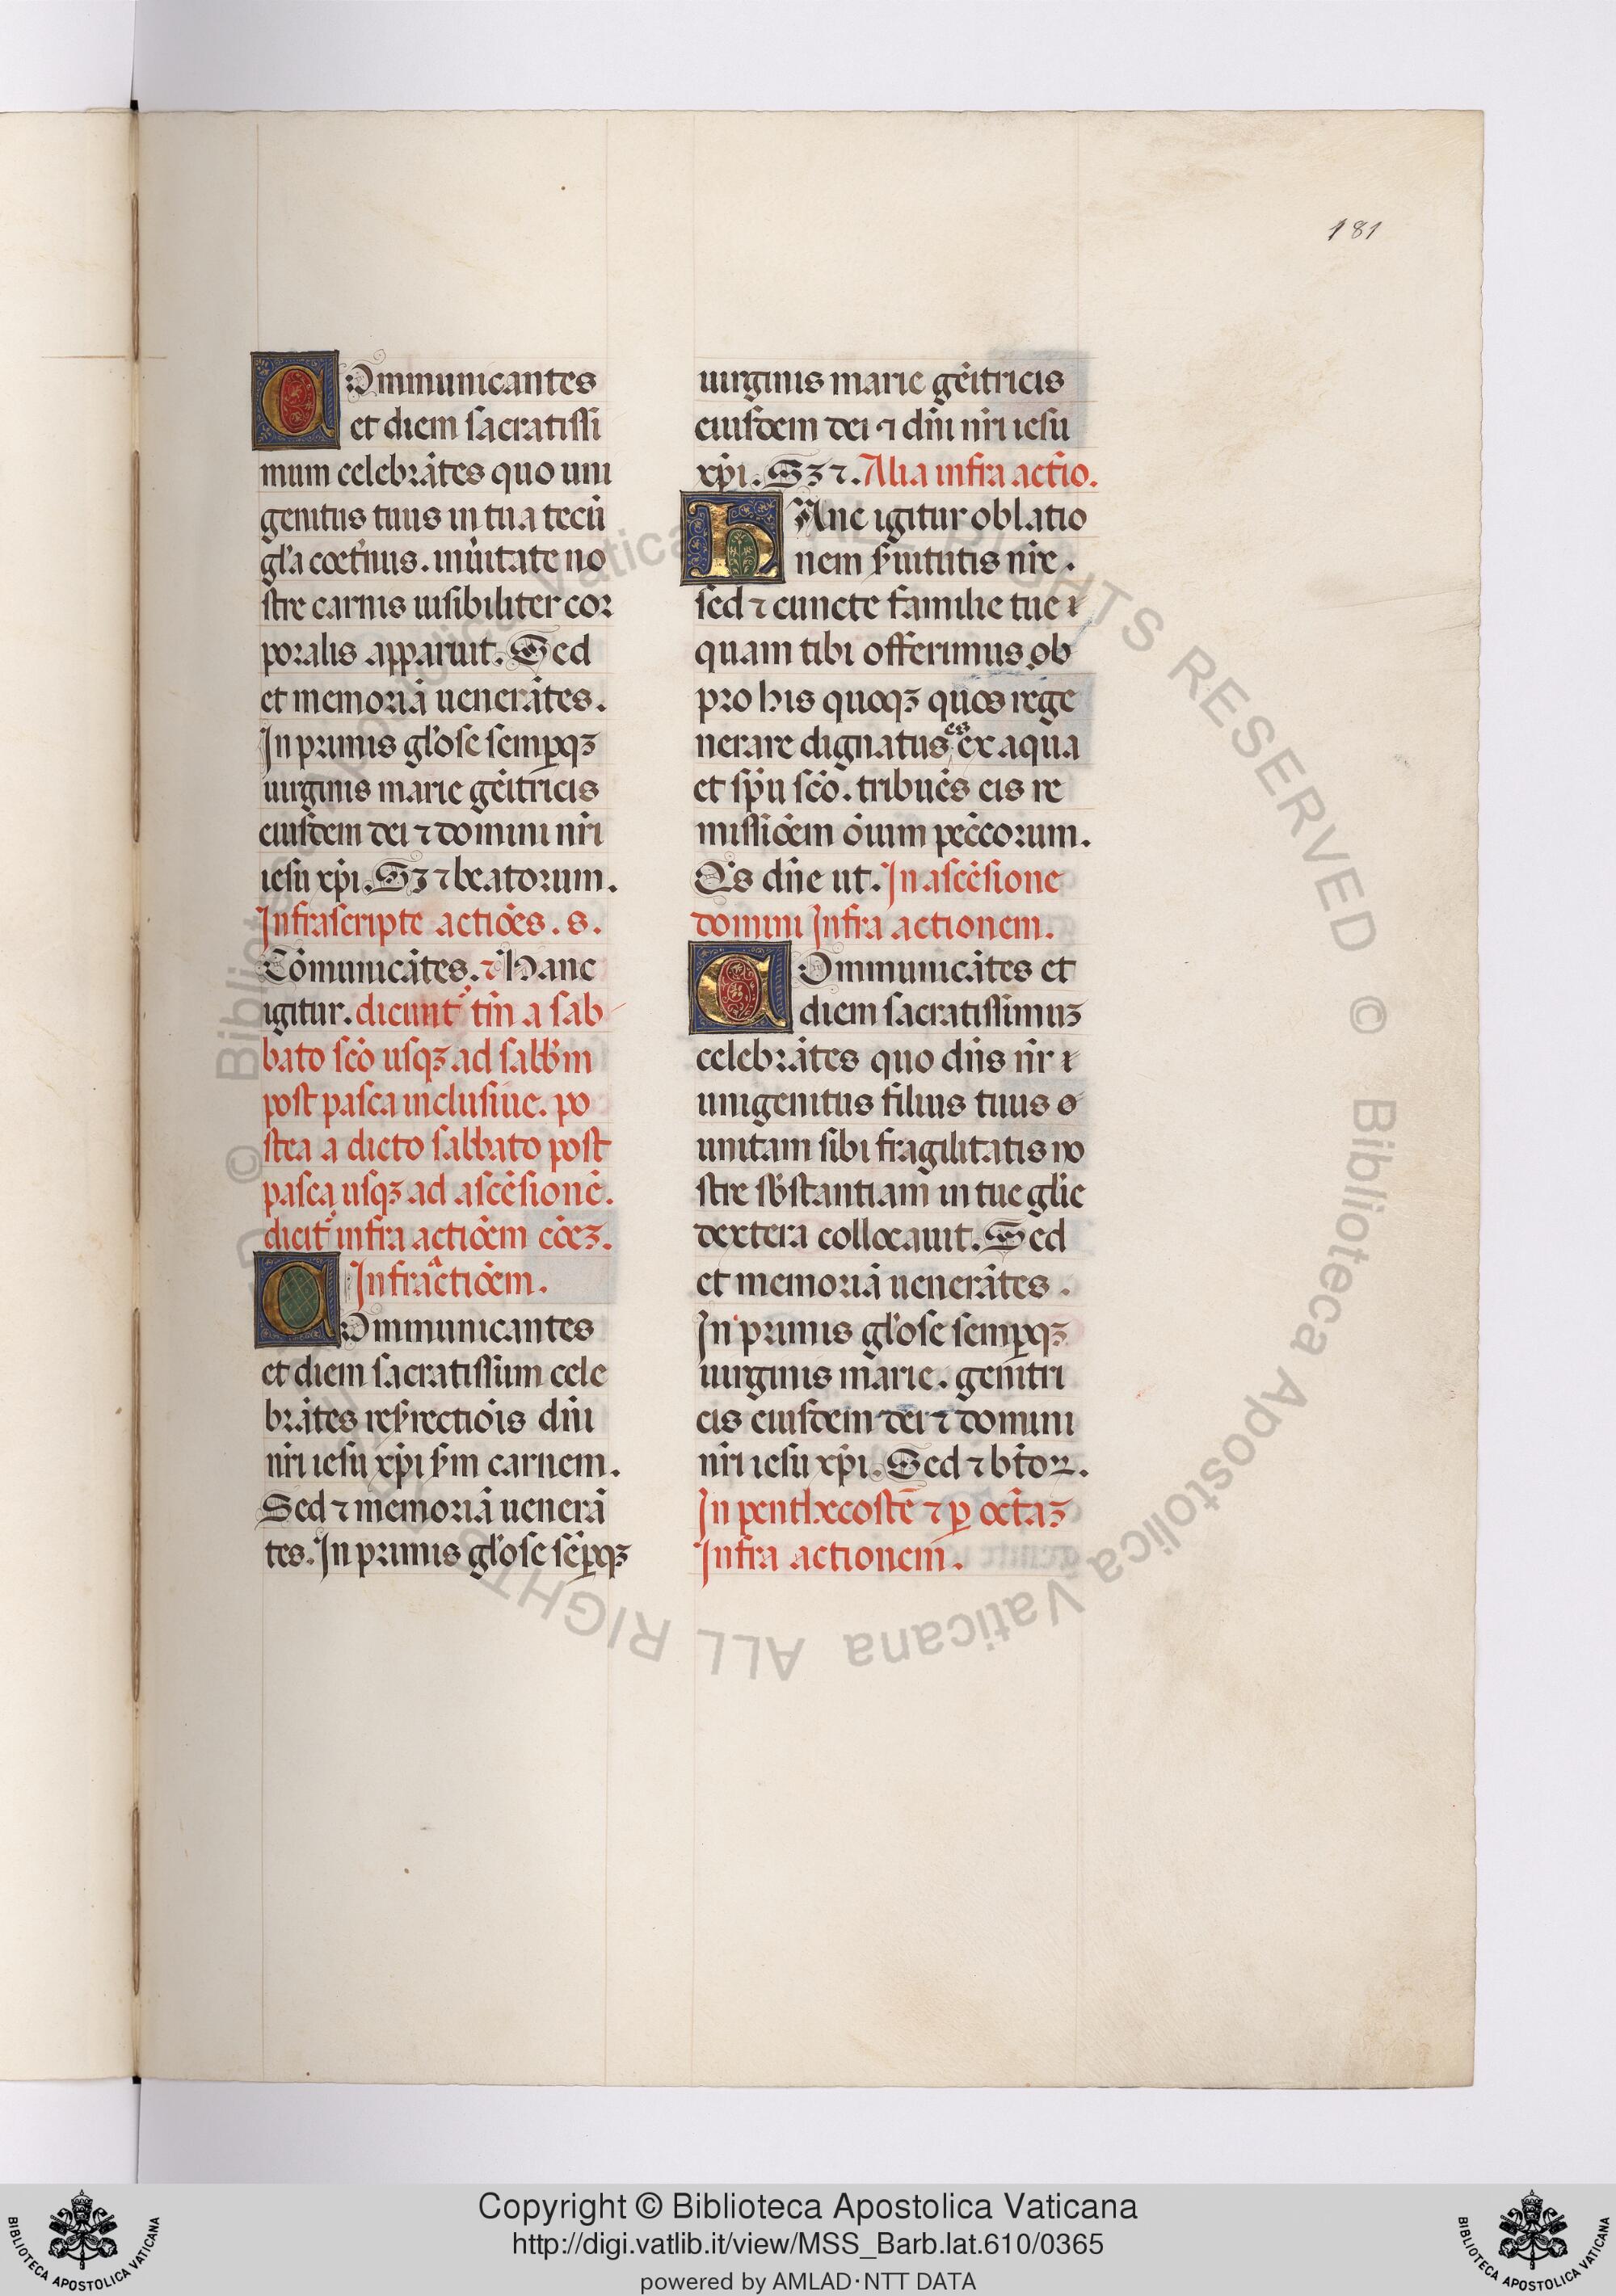 181
COmmunicantes
et diem sacratissi
mum celebrãtes quo uni
genitus tuus in tua tecũ
gľa coet̉nus. in ũitate no
stre carnis uisibiliter cor
poralis apparuit. Sed
et memoriã uenerãtes.
In primis gľose semꝑqꝫ
uirginis marie gẽitricis
eiusdem dei ⁊ domini nr̃i
iesu xp̃i. Sꝫ ⁊ beatorum.
Infrascripte actiões. s.
Cõmunicãtes. ⁊ Hanc
igitur. dicunt᷑ tm̃ a sab
bato scõ usqꝫ ad sabb̃m
post pasca inclusiue. po
stea a dicto sabbato post
pasca usqꝫ ad ascẽsionẽ.
dicit᷑ infra actiõem cõeꝫ.
Infra actiõem.
COmmunicantes
et diem sacratissium cele
brãtes resr̃rectiõis dñi
nr̃i iesu xp̃i sm̃ carnem.
Sed ⁊ memoriã uenerã
tes. In primis gľose sẽꝑqꝫ
uirginis marie gẽitricis
eiusdem dei ⁊ dñi nr̃i iesu
xp̃i. Sꝫ ⁊. Alia infra actĩo.
HAnc igitur oblatio
nem s̃uitutis nr̃e.
sed ⁊ cuncte familie tue
quam tibi offerimus
pro his quoqꝫ quos rege
nerare dignatus es ex aqua
et sp̃u scõ. tribuẽs eis re
missiõem õium pecc̃orum.
Q̃s dñe ut. In ascẽsione
domini Infra actionem.
COmmunicãtes et
diem sacratissimuꝫ
celebrãtes quo dñs nr̃
unigenitus filius tuus
unitam sibi fragilitatis no
stre sb̃stantiam in tue gľie
dextera collocauit. Sed
et memoriã uenerãtes.
In primis gľose semꝑqꝫ
uirginis marie. genitri
cis eiusdem dei ⁊ domini
nr̃i iesu xp̃i. Sed ⁊ bt̃oꝝ.
In penthecostẽ ⁊ ꝑ oct̃aꝫ
Infra actionem.
© Biblioteca Apostolica Vaticana ALL RIGHTS RESERVED
Copyright © Biblioteca Apostolica Vaticana
http://digi.vatlib.it/view/MSS_Barb.lat.610/0365
powered by AMLAD·NTT DATA
BIBLIOTECA APOSTOLICA VATICANA
BIBLIOTECA APOSTOLICA VATICANA